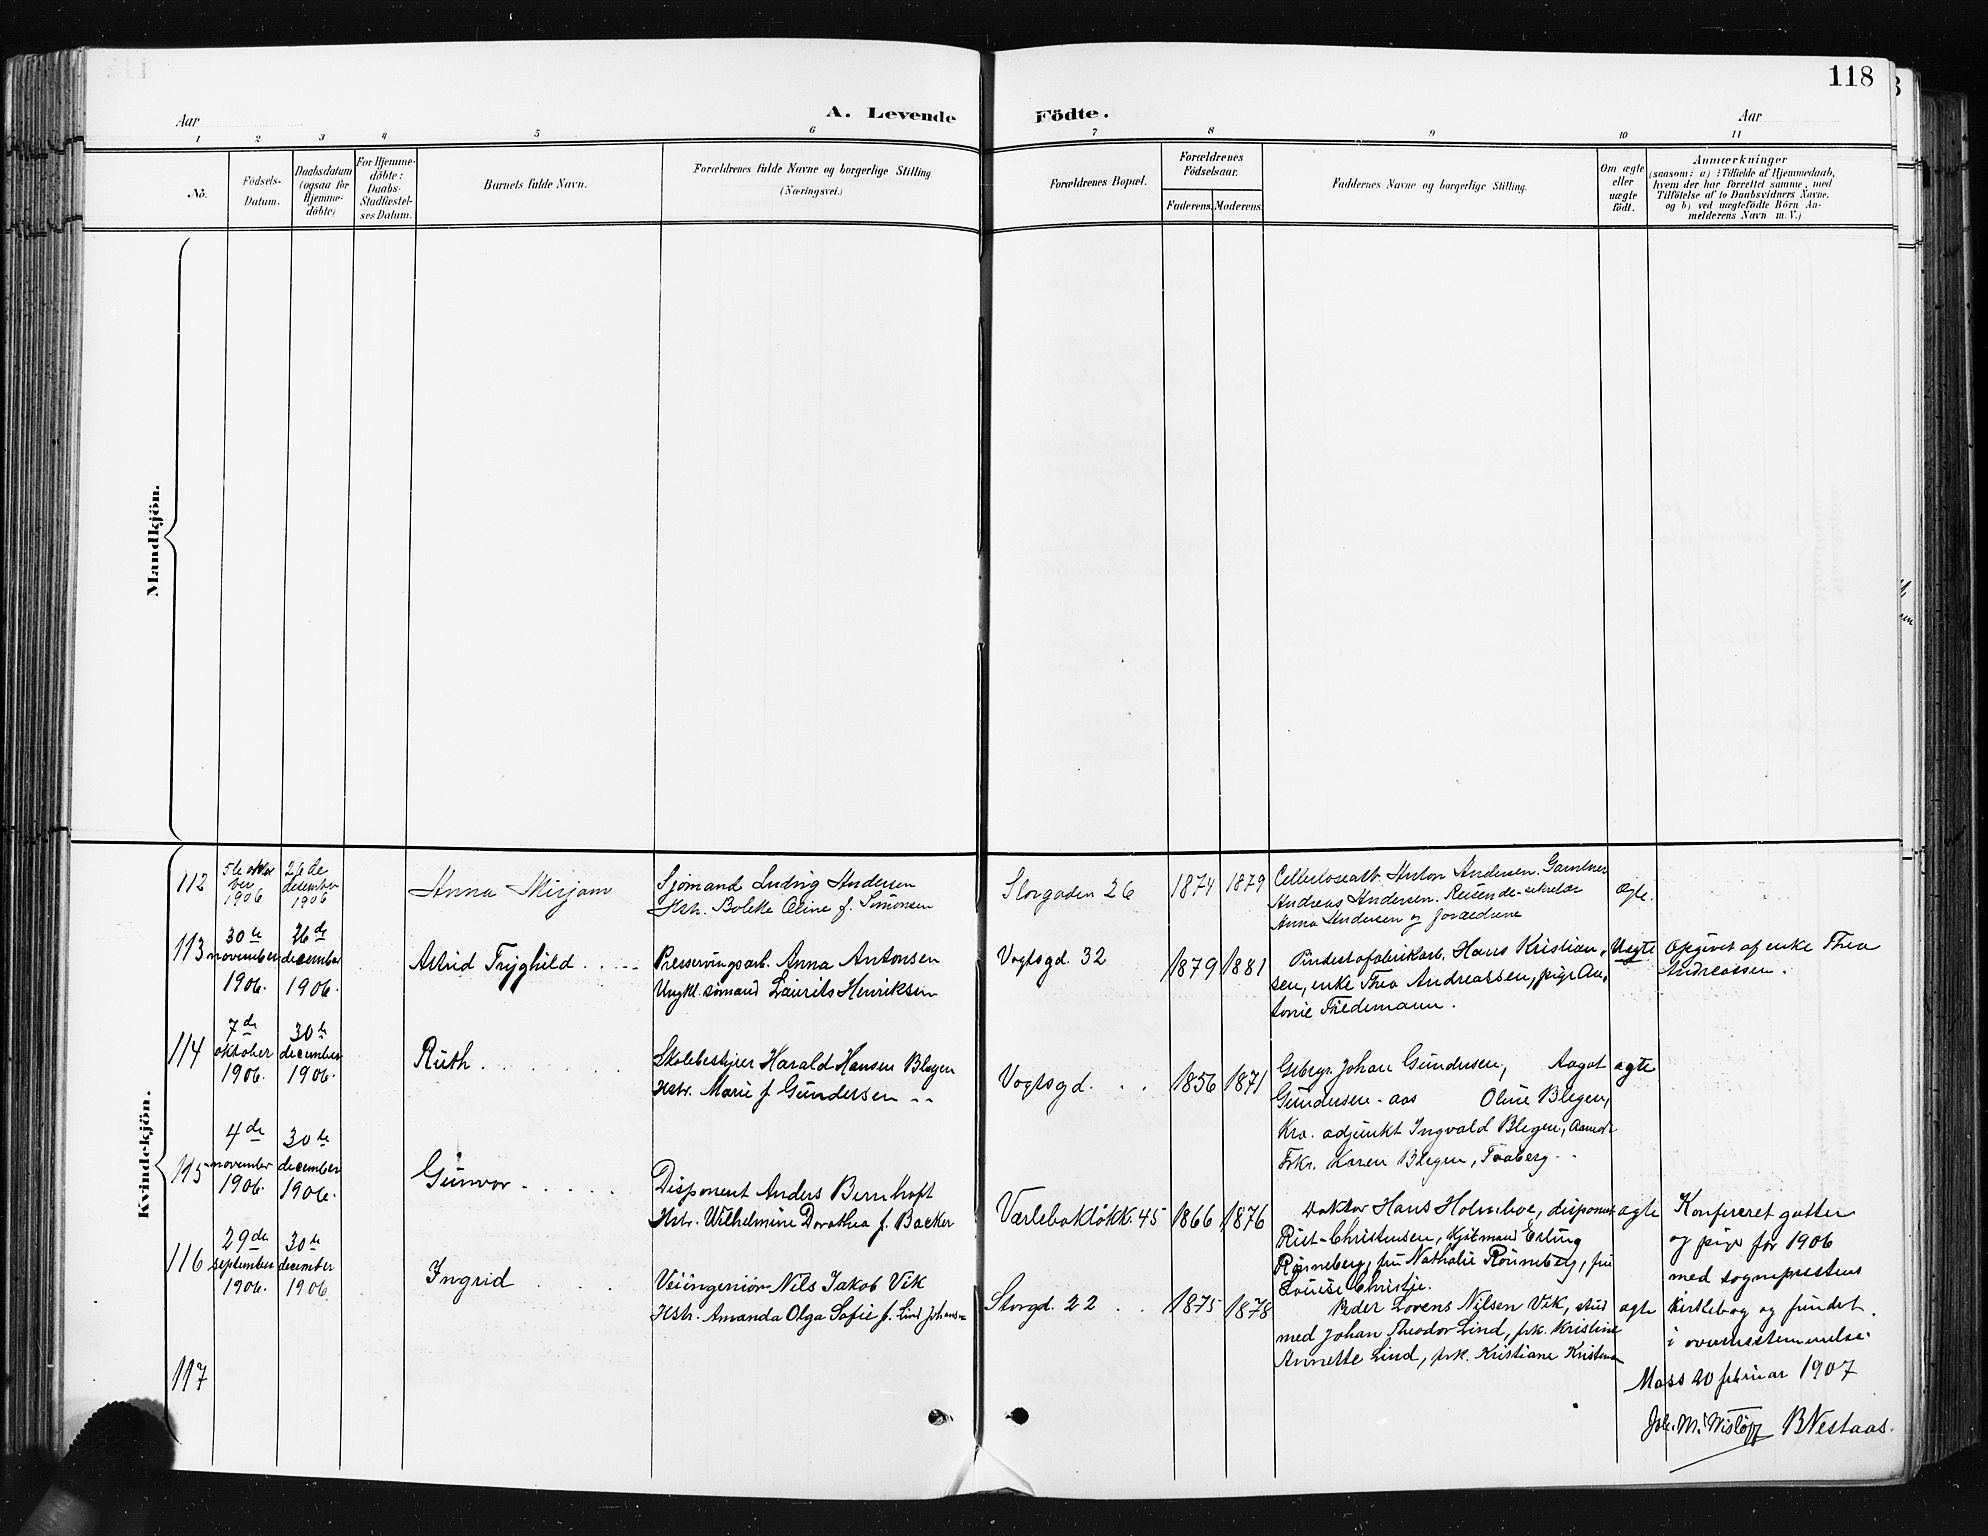 118
A. Levende Födte.
Aar
Aar
1 2 3 4 5 6 7 8 9 10 11
No.
Födsels-
Datum.
Daabsdatum
(ogsaa for
Hjemme-
döbte)
For Hjemme-
döbte:
Daabs-
Stadfæstel-
ses Datum.
Barnets fulde Navn.
Forældrenes fulde Navne og borgerlige Stilling
(Næringsvei.)
Forældrenes Bopæl.
Forældrenes
Födselsaar.
Faderens. Moderens.
Faddernes Navne og borgerlige Stilling.
Om ægte
eller
uægte
födt.
Anmærkninger
(saasom: a) i Tilfælde af Hjemmedaab,
hvem der har forrettet samme, med
Tilföielse af to Daabsvidners Navne,
og b) ved uægtefödte Börn An-
melderens Navn m. V.)
Mandkjön.
Kvindekjön.
112
5te okto
ber
1906
26de
december
1906
Anna Mirjam
Sjømand Ludvig Andersen
Hstr. Bolette Oline f. Simonsen
Storgaden 26
1874 1879
Cellulosearb. Anton Andersen. Gartner
Andreas Andersen. Reisende-sekretær
Anna Andersen og forældrene
ægte.
113
30te
november
1906.
26de
december
1906.
Astrid Tryghild
Preserveringsarb. Anna Antonsen
Ungkl. sømand Laurits Henriksen
Vogtsgd. 32
1879 1881
Hans Kristian-
sen, enke Thea Andreassen, pige An-
tonie Tiedemann.
Uægte
Opgivet af enke Thea
Andreassen.
114
7de
oktober
1906.
30te
december
1906.
Ruth
Skolebestyrer Harald Hansen Blegen
Hstr. Marie f. Gundersen
Vogtsgd.
1856 1871
Grbrgr. Johan Gundersen, Aagot
Gundersen - aas Oline Blegen,
Kra. adjunkt Ingvald Blegen,
Frkr. Karen Blegen, Faaberg
ægte
115
4de
november
1906.
30te
december
1906.
Gunvor
Disponent Anders Bernhoft
Hstr. Wilhelmine Dorothea f. Backer
Værlebakløkk. 45
1866 1876
Doktor Hans Holmboe, disponent
Riet-Christensen, kjøbmand Erling
Rønneberg, fru Nathalie Rönneberg, fru
Louise Christie.
ægte
116
29de
september
1906.
30te
december
1906.
Ingrid
Veiingeniør Nils Jakob Vik
Hstr. Amanda Olga Sofie f. Lind Johans-
Storgd. 22
1875 1878
Peder Lorens Nilsen Vik, stud
med Johan Theodor Lind, frk. Kristine
Annette Lind, frk. Kristiane
ægte
Konfereret gutter
og piger for 1906
med sogneprestens
kirkebog og fundet
i overensstemmelse.
Moss 20 februar 1907
Joh. M. Wisløff B Nestaas.
117